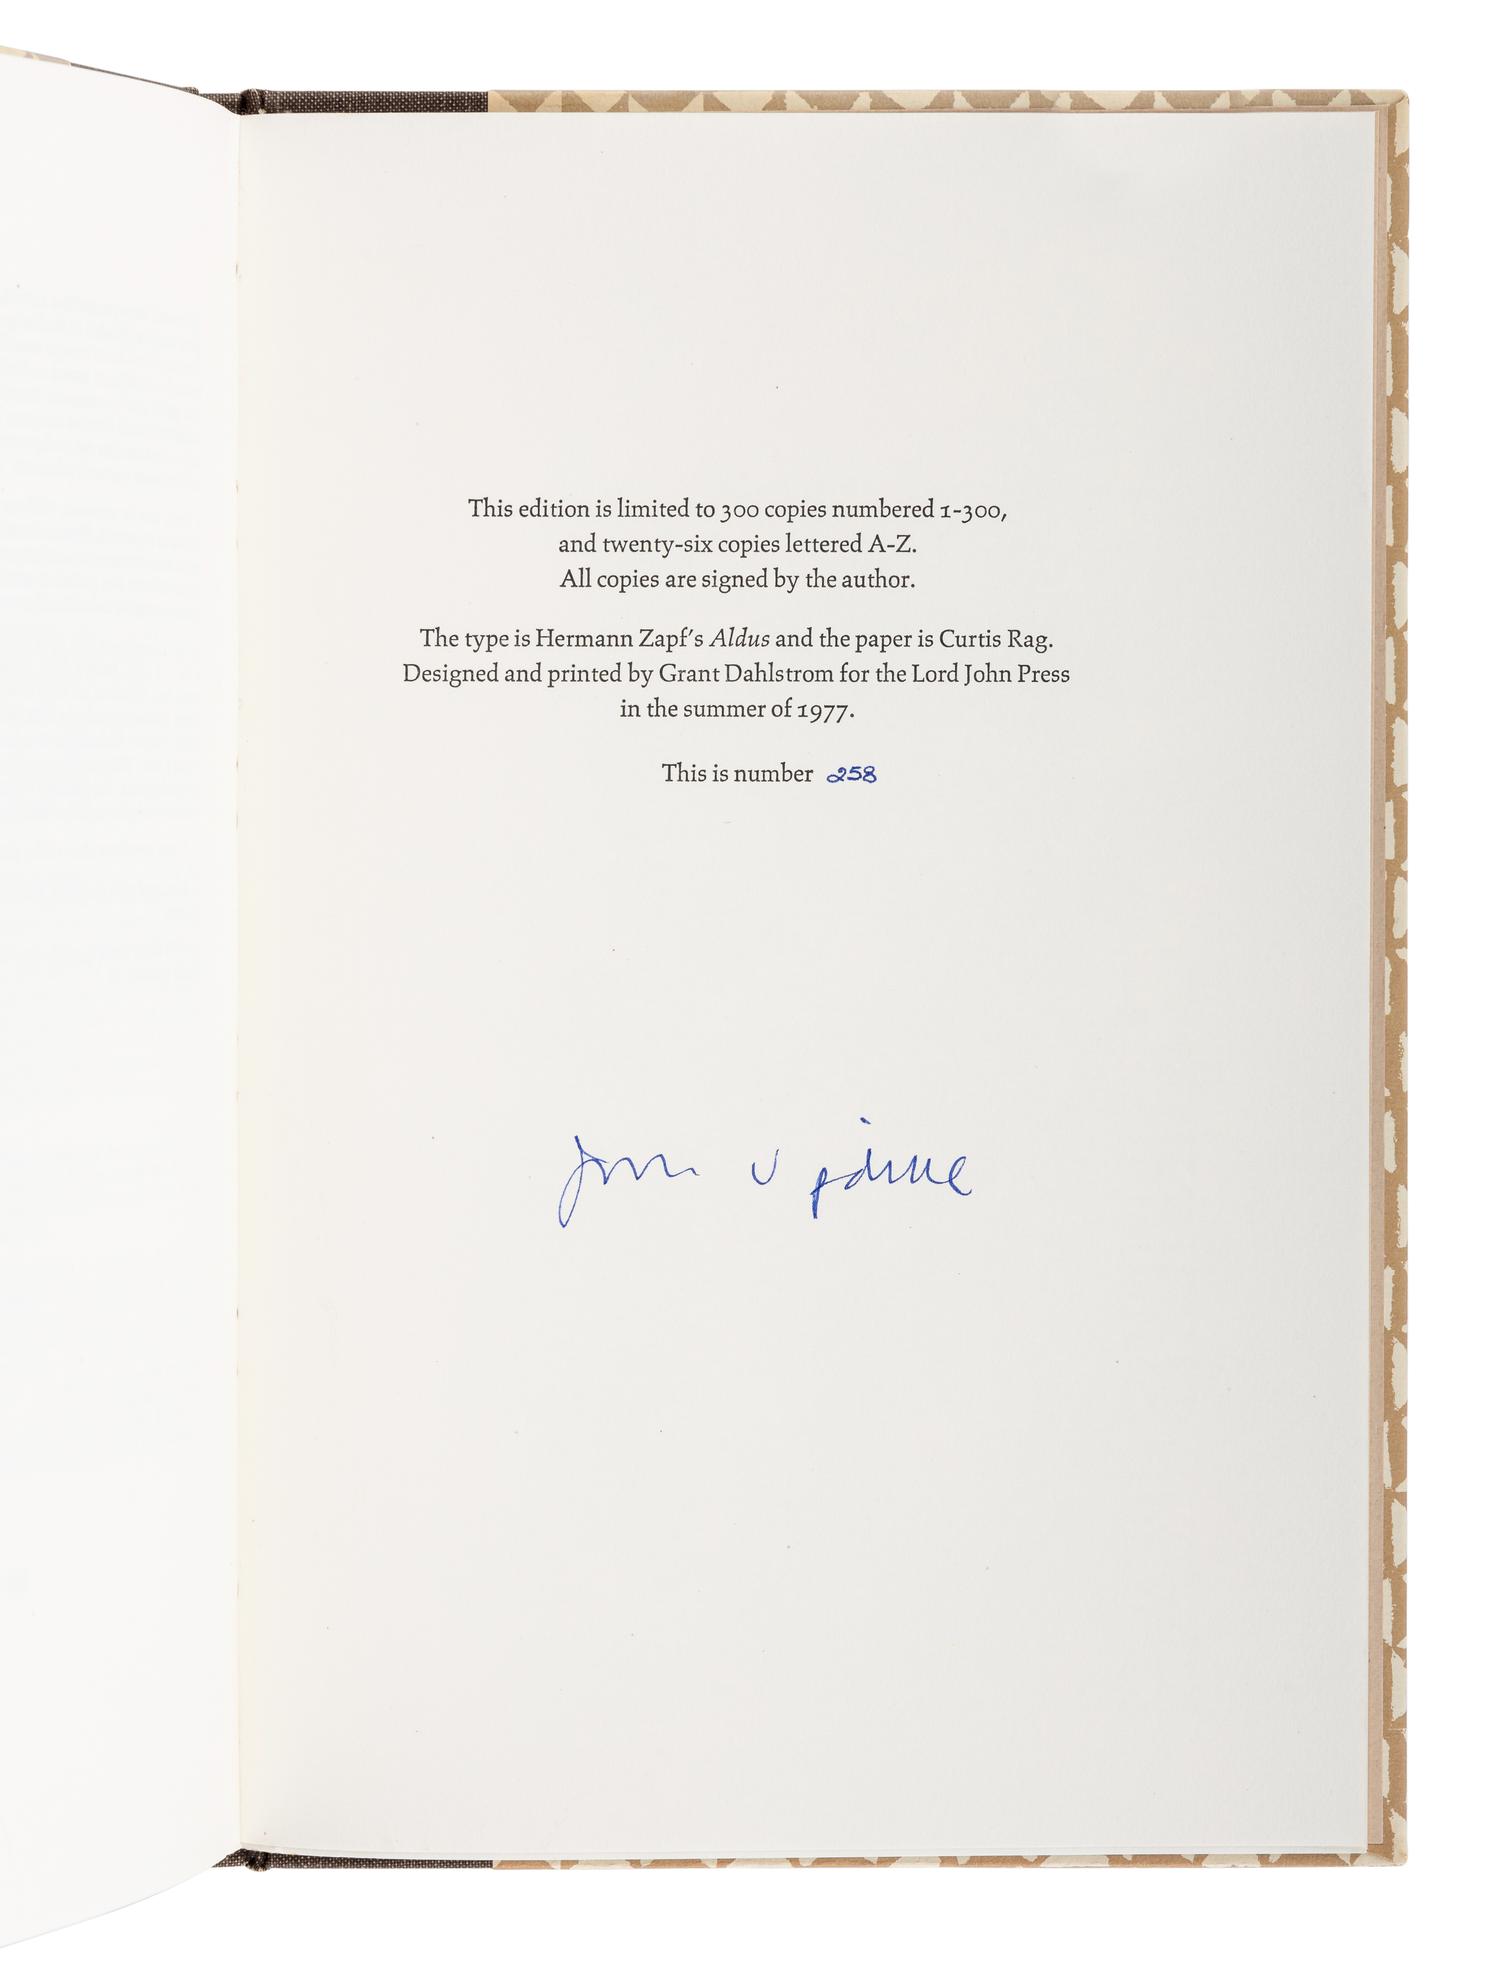 This edition is limited to 300 copies numbered 1-300,
and twenty-six copies lettered A-Z.
All copies are signed by the author.
The type is Hermann Zapf's Aldus and the paper is Curtis Rag.
Designed and printed by Grant Dahlstrom for the Lord John Press
in the summer of 1977.
This is number 258
John Updike